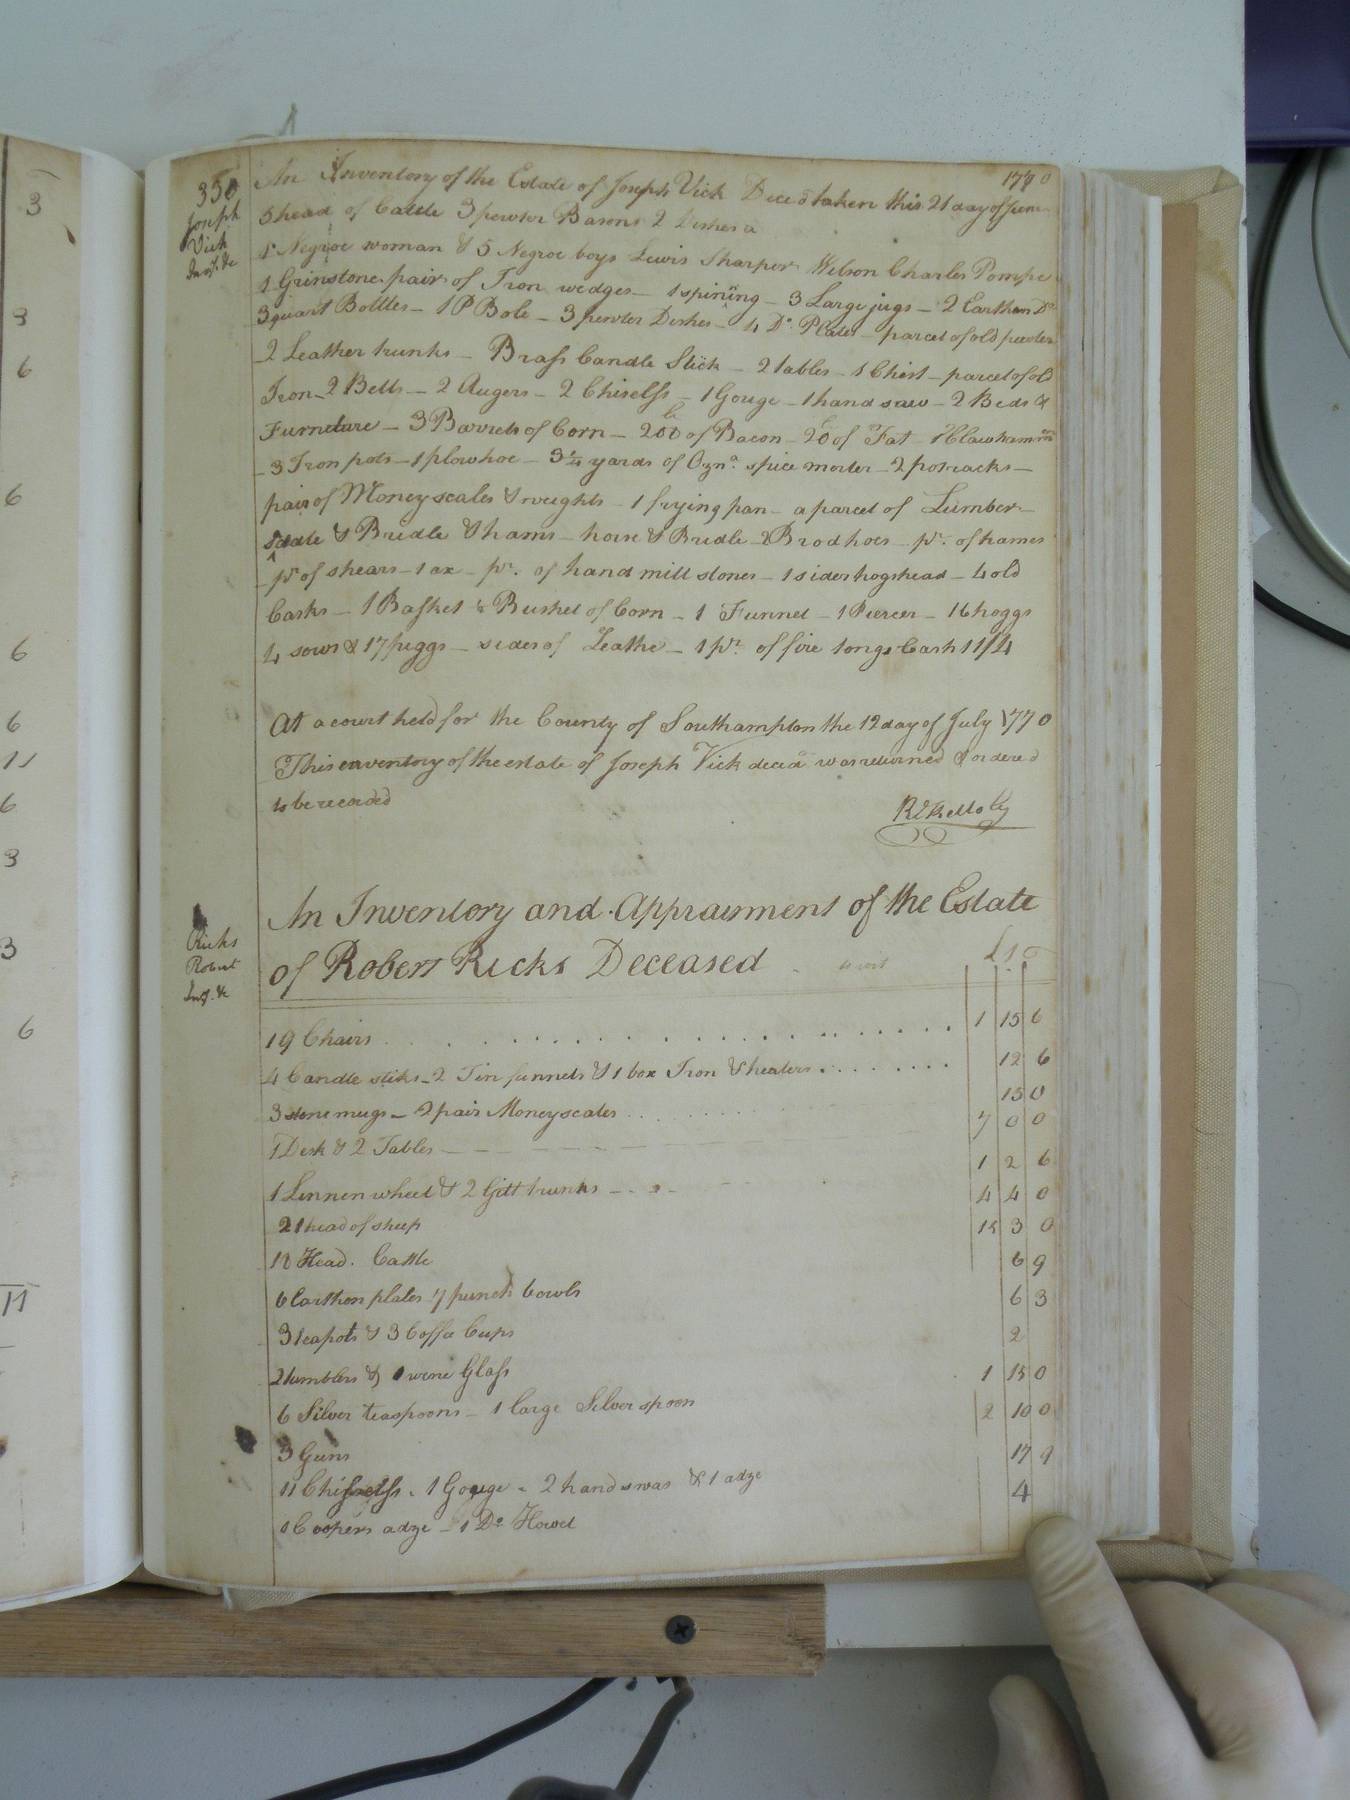 350
Joseph
Vick
Inv.t &c
1770
An Inventory of the Estate of Joseph Vick Deced taken this 21 day of June
5 head of Cattle 3 pewter Basons 2 Dishes a
1 Negroe woman & 5 Negroe boys Lewis Sharper Wilson Charles Pompe
1 Grinstone pair of Iron wedges - 1 spining - 3 Large jugs - 2 Earthen Do
3 quart Bottles - 1 P Bole - 3 pewter Dishes - 4 Do. Plates - parcel of old pewter
2 Leather trunks - Brass Candle Stick - 2 tables - 1 Chest - parcel of old
Iron - 2 Bells - 2 Augers - 2 Chisells - 1 Gouge - 1 hand saw - 2 Beds &
Furneture - 3 Barrels of Corn - 200 of Bacon - 20 of Fat - 1 Clawhammer
3 Iron pots - 1 plowhoe - 3 1/4 yards of Ozna. spice morter - 2 pot racks -
pair of Money scales & weights - 1 frying pan - a parcel of Lumber -
Sadle & Bridle & hams - horse & Bridle - 2 Brod hoes - pr. of hames
pr of shears - 1 ax - pr. of hand mill stones - 1 sider hogshead - 4 old
Casks - 1 Basket & Bushel of Corn - 1 Funnel - 1 Piercer - 16 hoggs
4 sows & 17 piggs - sides of Leathe - 1 pr. of fire tongs Cash 11/4
At a court held for the County of Southampton the 12 day of July 1770
This inventory of the estate of Joseph Vick deced was returned & ordered
to be recorded
Rd Kello Cy
Ricks
Robert
Inv.t &c
An Inventory and Appraisment of the Estate
of Robert Ricks Deceased to wit £ s d
19 Chairs 1 15 6
4 Candle stiks - 2 Tin funnels & 1 box Iron & heaters 12 6
3 stone mugs - 2 pair Money scales 15 0
1 Desk & 2 Tables 7 0 0
1 Linnen wheel & 2 Gilt trunks 1 2 6
21 head of sheep 4 4 0
18 Head. Cattle 15 3 0
6 Earthen plates 7 punch bowls 6 9
3 teapots & 3 Coffe Cups 6 3
2 tumblers & 1 wine Glass 2
6 Silver teaspoons - 1 large Silver spoon 1 15 0
3 Guns 2 10 0
11 Chisells - 1 Gouge - 2 hand swas & 1 adze 17 9
1 Coopers adze - 1 Do Howel 4
3
3
6
6
6
6
11
6
3
3
6
11